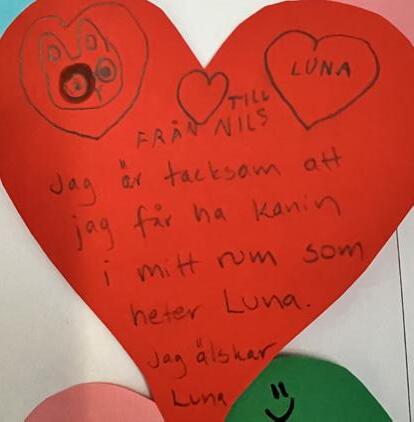 LUNA
TILL
FRÅN NILS
Jag är tacksam att
jag får ha kanin
i mitt rum som
heter Luna.
Jag älskar
Luna